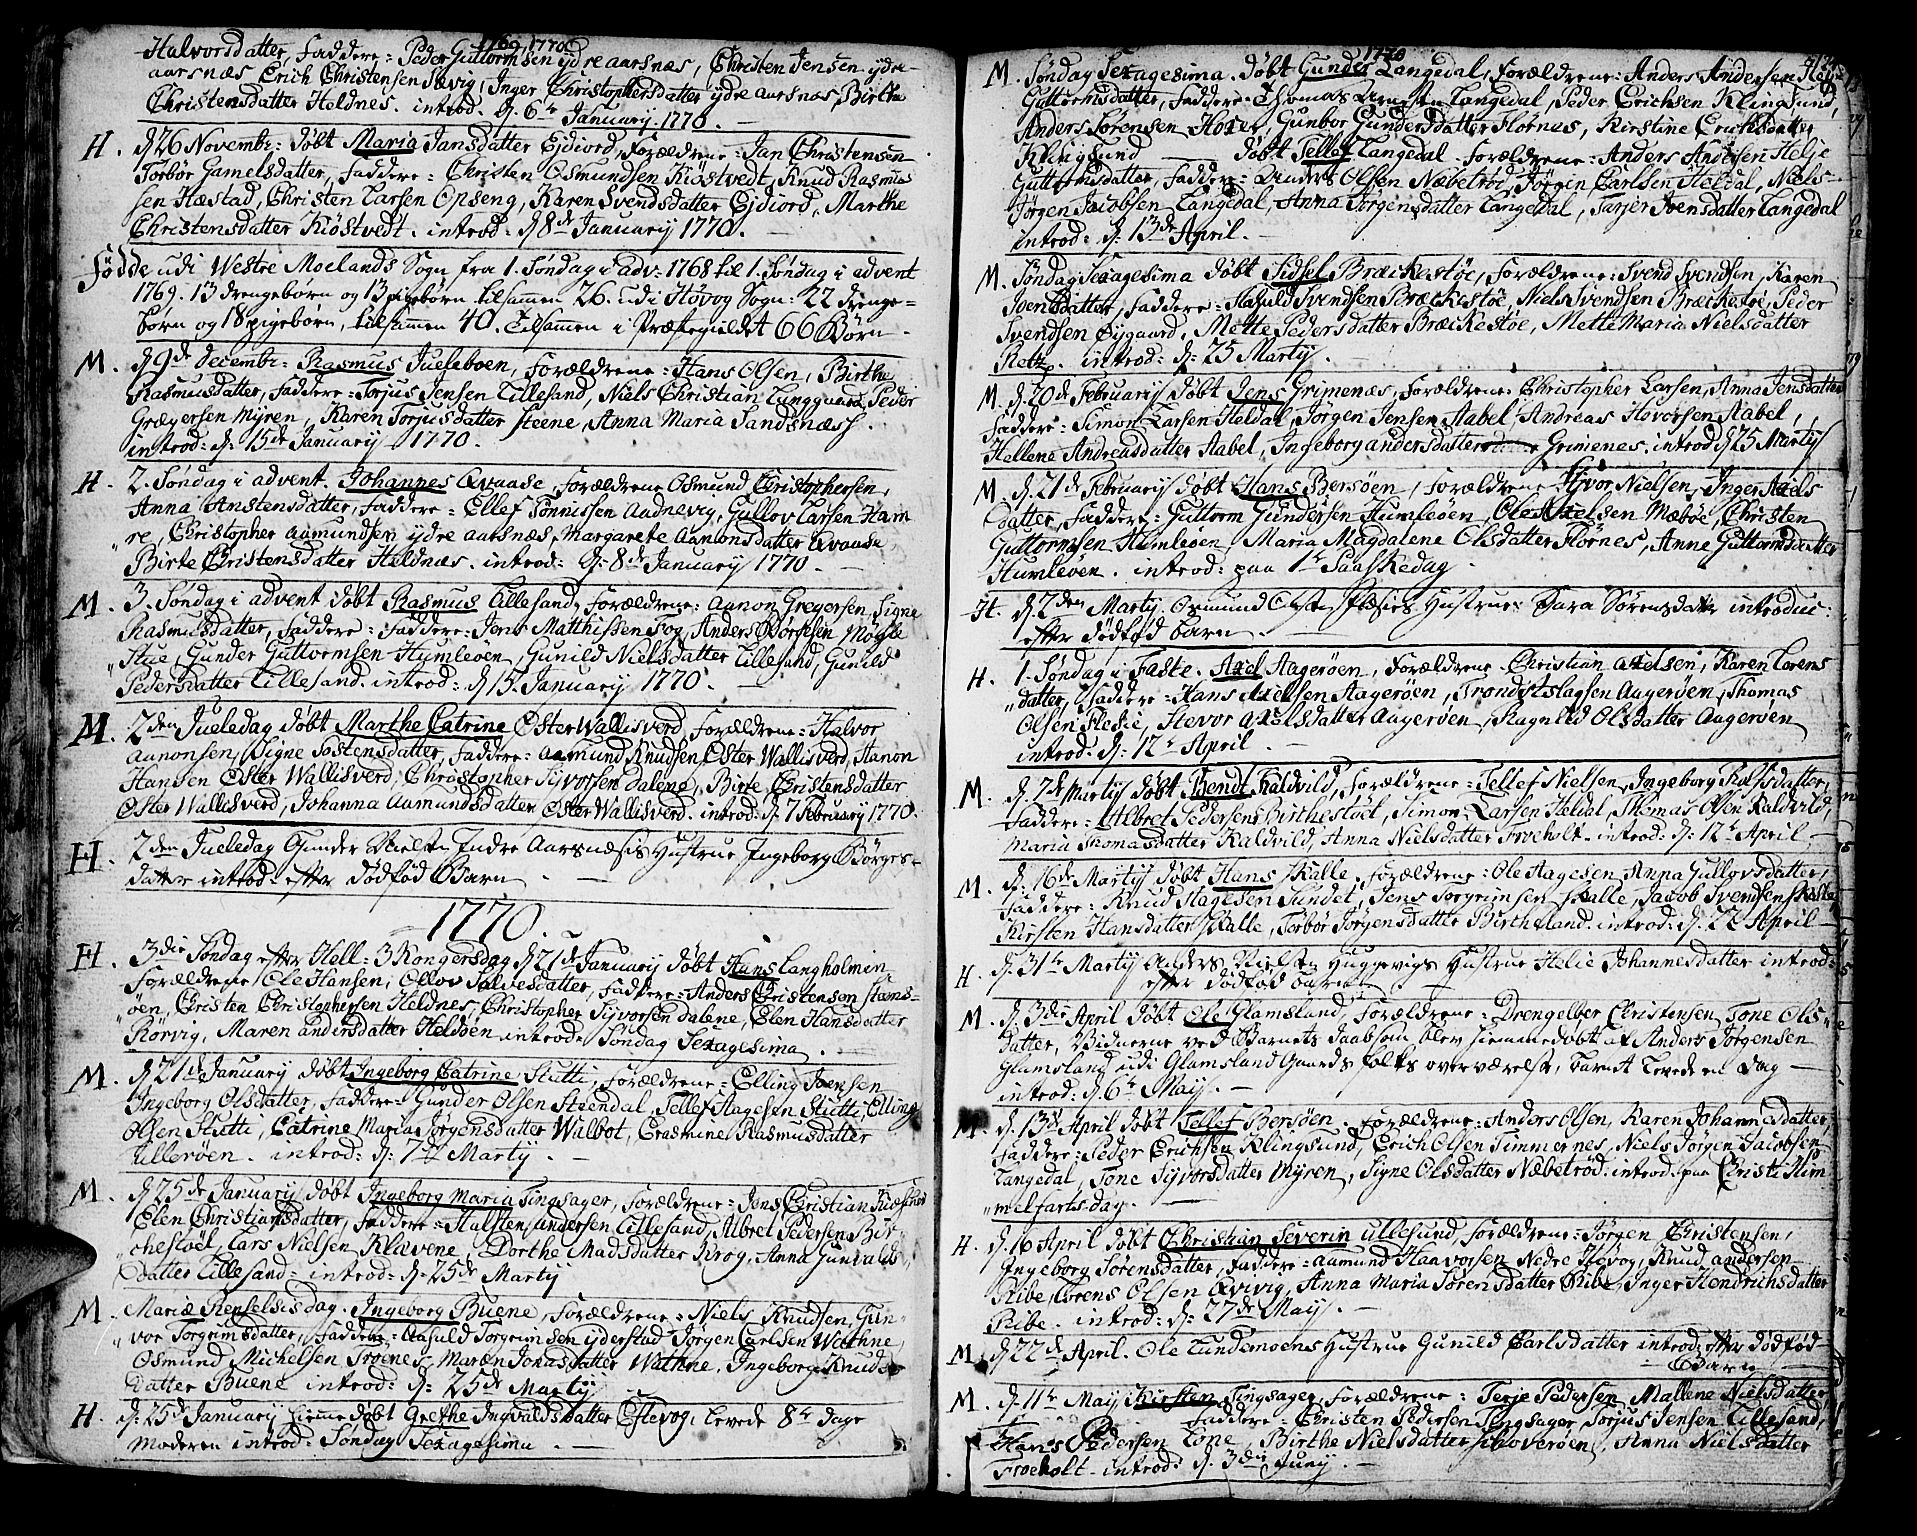 1769. 1770.
Halvorsdatter, Faddere: Peder Guttormsen ydre aarsnæs, Christen Jensen ydre
aarsnæs Erich Christensen Sævig, Inger Christophersdatter ydre aarsnæs Birthe
Christensdatter Heldnes. introd. d. 6te January. 1770.
H. d 26 Novembr: døbt Maria Jansdatter Ejdiord, Forældrene: Jan Christensen
Torbør Gamelsdatter, Faddere: Christen Osmundsen Kiøstvedt, Knud Rasmus
sen Hæstad, Christen Larsen Opseng, Karen Svendsdatter Ejdiord, Marthe
Christensdatter Kiøstvedt. introd: d 8de January 1770.
Fødde udi Westre Moelands Sogn fra 1. Søndag i adv: 1768 til 1. Søndag i advent
1769. 13 drengebørn og 13 pigebørn tilsammen 26. udi Høvog Sogn: 22 drenge-
børn og 18 pigebørn, tilsammen 40. Tilsammen i Præstegieldet 66 Børn.
M. d 9de decembr: Rasmus Jueleboen, Forældrene: Hans Olsen, Birthe
Rasmusdatter, Faddere: Torjus Jensen Lillesand, Niels Christian Lunggaard, Peder
Grægersen Myren, Karen Torjusdatter Steene, Anna Maria Sandsnæss.
introd: d. 15de January 1770.
H. 2. Søndag i advent. Johannes Qvaase, Forældrene Osmund Christophersen,
Anna Anstensdatter, Faddere: Ellef Tønnissen Aadnevig, Gullov Larsen Ham
re, Christopher aamundsen ydre aarsnæs, Margarete Aanonsdatter Qvaase
Birte Christensdatter Heldnæs. introd: d: 8de January 1770.
M. 3. Søndag i advent døbt Rasmus Lillesand, Forældrene: Aanon Gregersen, Signe
Rasmusdatter, Faddere: Faddere: Jens Matthissen Fog, Anders Børresen Møgle
Stue, Gunder Guttormsen Humleoen, Gunild Nielsdatter Lillesand, Gunild
Pedersdatter Lillesand. introd: d 15. January 1770.
M. 2den Jueledag døbt Marthe Catrine Øster Wallisverd, Forældrene: Halvor
Aanonsen, Signe Tostensdatter, Faddere: Aamund Knudsen Øster Wallisverd, Hanon
Hansen Øster Wallisverd, Christopher Sijvorsen Dalene, Birte Christensdatter
Øster Wallisverd, Johanna Aamundsdatter Øster Wallisverd. introd: d. 7 February 1770.
H. 2den Jueledag Gunder Nielsen Indre Aarsnæsis Hustrue, Ingeborg Børges-
datter introd. efter dødfød Barn
1770.
H. 3die Søndag efter Hell: 3 Kongersdag d 21de January døbt Hans Langholmin,
Forældrene: Ole Hansen, Ollov Salvesdatter, Faddere: Anders Christensøn Stams-
øen, Christen Christophersen Heldnes, Christopher Sijvorsen dalene, Elen Hansdatter
Rørvig, Maren andersdatter Heldøen introd. Søndag Sexagesima.
M. d 21de January døbt Ingeborg Catrine Stutti, Forældrene: Elling Joensen
Ingeborg Olsdatter, Faddere: Gunder Olsen Steendal, Tellef Aagesen Stutti, Elling
Olsen Stutti, Catrine Maria Jørgensdatter Walbot, Erasmine Rasmusdatter
Ullerøen. introd: d: 7de Marty.
M. d 25de January døbt Ingeborg Maria Tingsager, Forældrene: Jens Christian
Elen Christiansdatter, Faddere: Halsten andersen Lillesand, Albret Pedersen Bir-
chestøel Lars Nielsen Klavene, Dorthe Madsdatter Krog, Anna Gunvalds
datter Lillesand: introd: d: 25de Marty
M. Mariæ Renselsis dag. Ingeborg Buene, Forældrene: Niels Knudsen, Gun-
vor Torgrimsdatter, Faddere: Aasuld Torgrimsen yderstad Jørgen Carlsen Wathne,
Osmund Michelsen Trøenes Maren Jonasdatter Wathne, Ingeborg Knuds
datter Buene introd: d: 25de Marty
H. d: 25de January hiemmedøbt Grethe Ingvaldsdatter Estevog, levede 8te dage
Moderen introd: Søndag Sexagesima.
1770
M. Søndag Sexagesima. døbt Gunder Langedal, Forældrene: Anders Andersen
Guttormsdatter, Faddere: Thomas Langedal, Peder Erichsen Klingsund,
Anders Sørensen Hoxer, Gunbor Gundersdatter Flørnus, Kirstine Erichsdatter
Klingsund døbt Tellef Langedal. Forældrene: Anders Andersen Helje
Guttormsdatter, Faddere: Anders Olsen Næbetrød, Jørgen Carlsen Heldal, Niels
Jørgen Jacobsen Langedal, Anna Jørgensdatter Langedal, Tarjer Ivensdatter Langedal
introd: d: 13de April.
M. Søndag Sexagesima døbt Sidsel Bræckestøe, Forældrene: Svend Svendsen, Karen
Ivensdatter, Faddere: Aasuld Svendsen Bræckestøe, Niels Svendsen Bræckestøe, Peder
Svendsen Øijgaard, Mette Pedersdatter Bræckestøe, Mette Maria Nielsdatter
Retz. introd: d: 25 Marty.
M. d. 20de February døbt Jens Grimenæs, Forældrene: Christopher Larsen, Anna Jensdatter
Faddere: Simon Larsen Heldal, Jørgen Jensen Aabel, Andreas Hovorsen Aabel,
Hellene Andreasdatter Aabel, Ingeborg andersdatter Grimenes. introd. d 25 Marty
M. d. 21de February døbt Hans Bersøen, Forældrene Sijvor Nielsen, Inger Axels
datter, Faddere: Guttorm Gundersen Humleøen, Ole Axelsen Mæbøe, Christen
Guttormsen Humleøen, Maria Magdalene Olsdatter Flørnes, Anne Guttormsdatter
Humleøen. introd: paa 1te Paaskedag.
H. d 2den Marty. Osmund Olsen Flesies Hustrue: Sara Sørensdatter introduc:
efter dødfød barn
H. 1. Søndag i Faste. Axel Aagerøen, Forældrene: Christian Axelsen, Karen Lorens
datter, Faddere: Hans Axelsen Aagerøen, Trond Aslagsen Aagerøen, Thomas
Olsen Flesie, Stevor Axelsdatter Aagerøen, Ragnild Olsdatter Aagerøen
introd: d: 12te April.
M. d. 7de Marty døbt Bendt Kaldvild, Forældrene: Tellef Nielsen, Ingeborg Rolfsdatter,
Faddere: Albret Pedersen Birchestøel, Simon Larsen Heldal, Thomas Olsen Kaldvild,
Maria Thomasdatter Kaldvild, Anna Nielsdatter Froeholt. introd: d: 12te April
M. d: 16de Marty døbt Hans Skalle, Forældrene: Ole Aagesen, Anna Gullovsdatter,
Faddere: Knud Aagesen Sundet, Jens Torgrimsen Skalle, Jacob Svendsen Skalle
Kirsten Hansdatter Skalle, Torbør Jørgensdatter Birtheland. introd: d: 22 April
H. d. 31te Marty Anders Nielsen Huggevigs Hustrue Helie Johannesdatter introd:
efter dødfød barn
M. d. 3die April døbt Ole Glamsland, Forældrene: Drengelber Christensen, Tone Ols-
datter, Vidnerne ved Barnets Daab som blev hiemmedøbt af Anders Jørgensen
Glamsland udi Glamsland Gaards folks overværelse, barnet levede en Dag
introd: d. 6te Maij.
M. d. 13de April døbt Tellef Bersøen. Forældrene: Anders Olsen, Karen Johannisdatter
Faddere: Peder Erichsen Klingsund, Erich Olsen Timmernes, Niels Jørgen Jacobsen
Langedal, Tone Sijvorsdatter Myren, Signe Olsdatter Næbetrød. introd: paa Christi Him
melfarts dag.
H. d. 16 April døbt Christian Severin Ullesund, Forældrene: Jørgen Christensen,
Ingeborg Sørensdatter, Faddere: Aamund Haavorsen Nedre Høvog, Knud andersen
Ribe, Lorens Olsen Qvivig, Anna Maria Sørensdatter Ribe, Inger Hendrichsdatter
Ribe. introd: d: 27de Maij.
M. d 22de April. Ole Lundemoens Hustrue Gunild Carlsdatter introd: efter dødfød
Barn
M. d. 11te Maij Kirsten Tingsager, Forældrene: Terje Pedersen Mallene Nielsdatter,
Faddere: Christen Pedersen Tingsager, Torjus Jensen Lillesand,
Hans Pedersen Tone, Birthe Nielsdatter Skoverøen, Anna Nielsdatter
Froeholt. introd: d. 3die Juny.